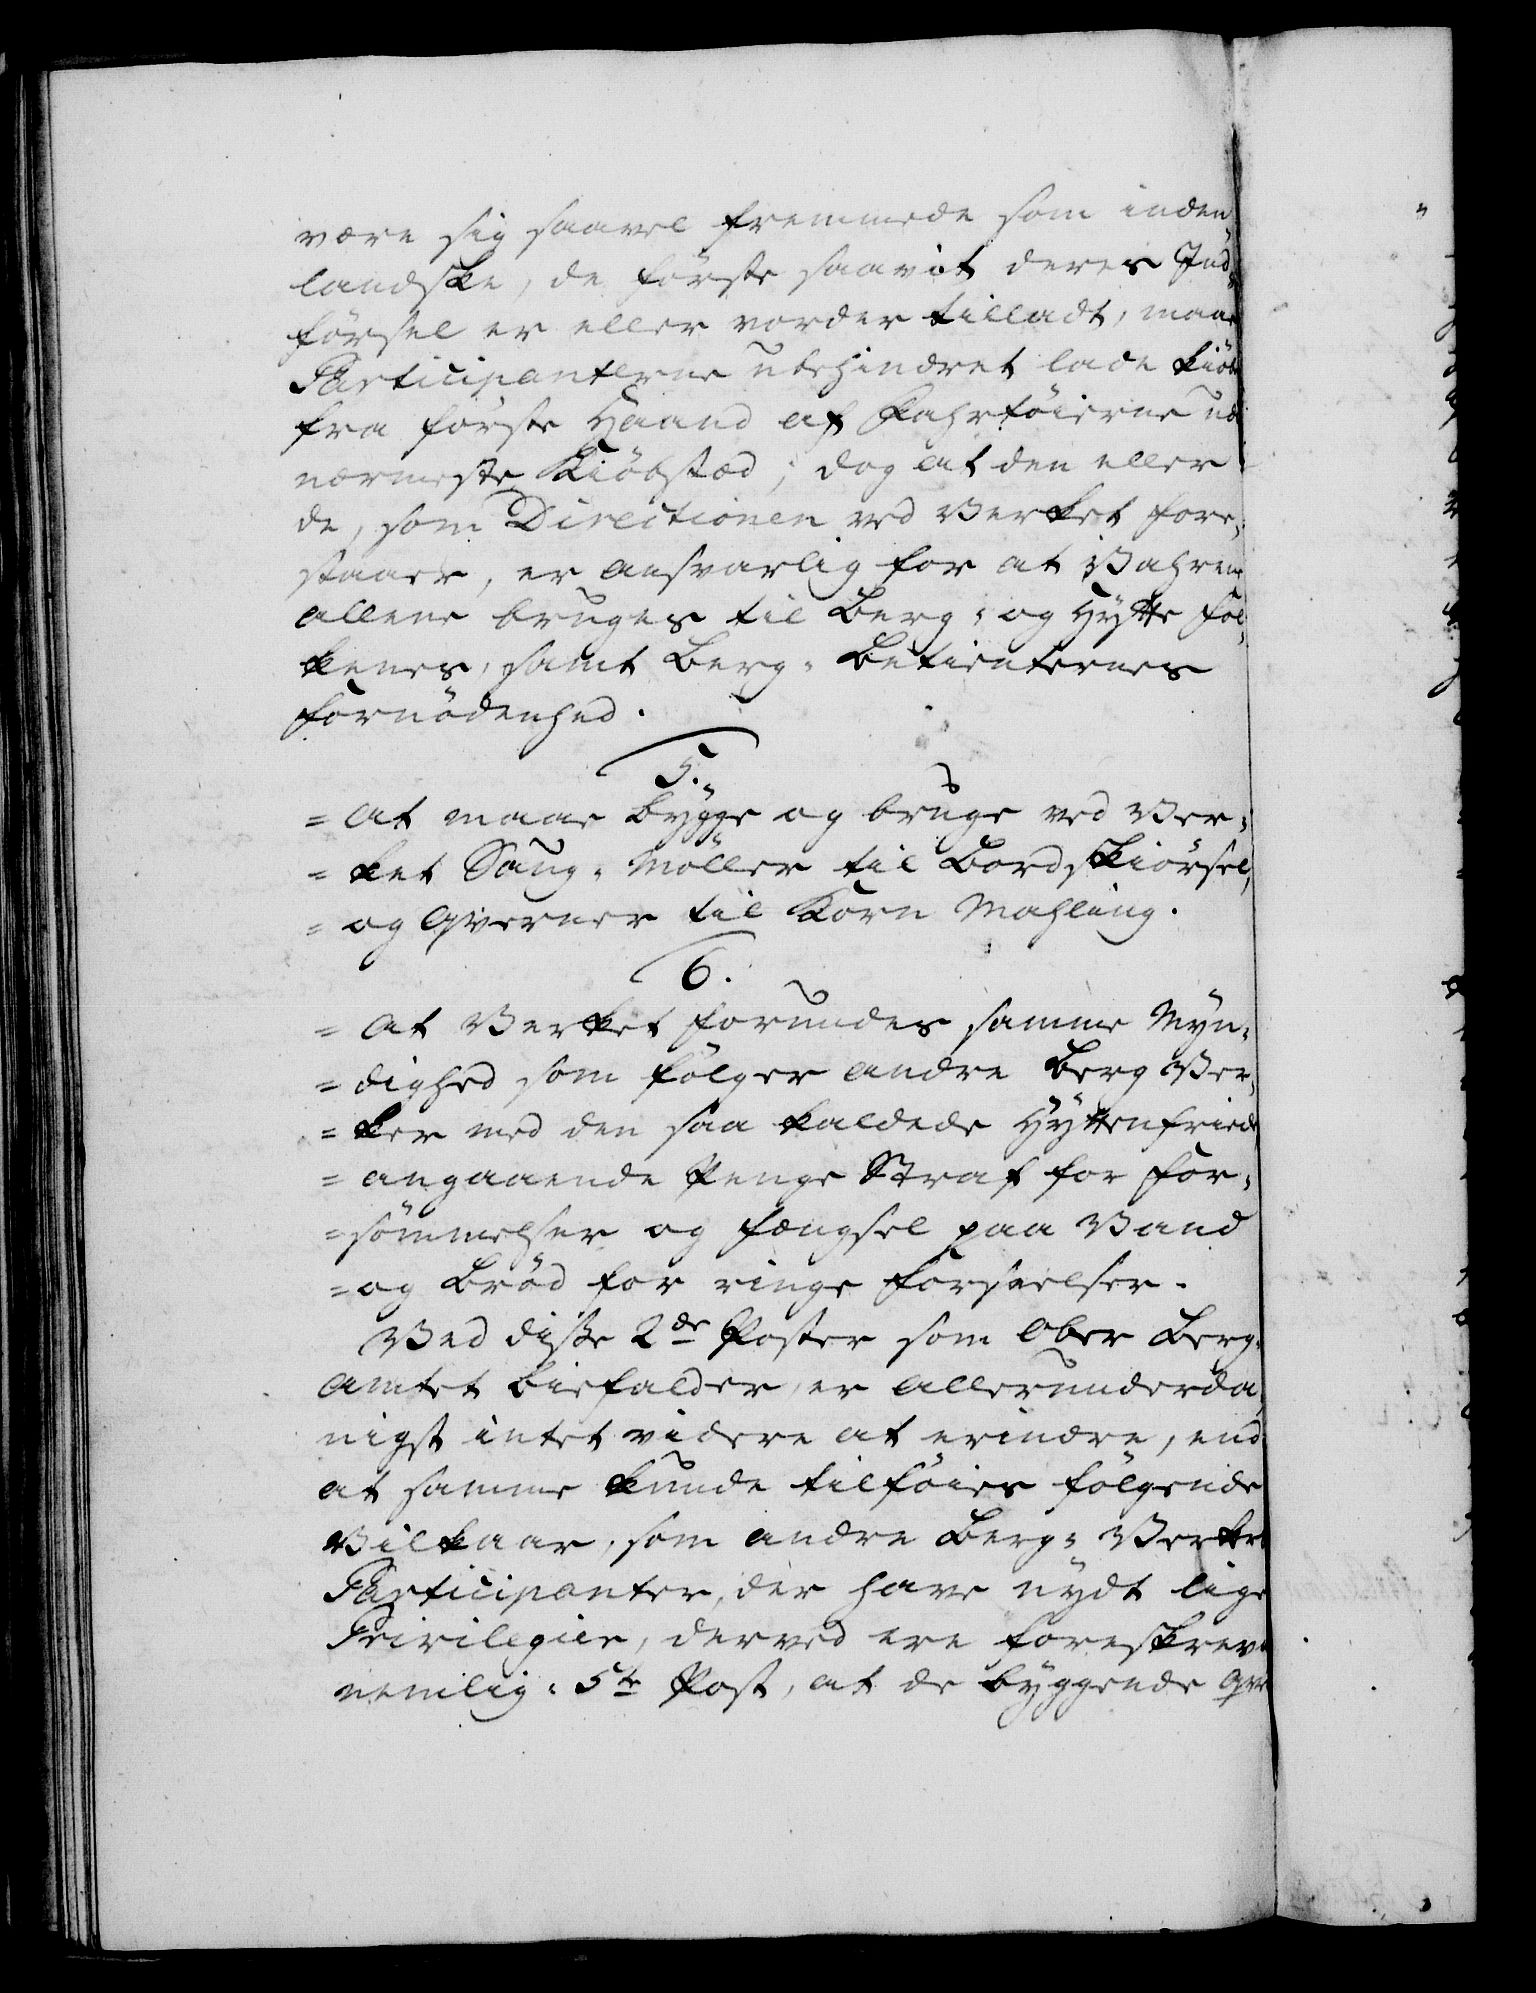 være sig saavel fremmede som inden¬
landske, de første saavit deres Ind¬
førsel er eller vorder tilladt, maae
Participanterne ubehindret lade kiøbe
fra første Haand af Fahrtøierne udi
nærmeste Kiøbstæd; dog at den eller
de, som Directionen ved Verket fore¬
staaer, er ansvarlig for at Vahrene
allene bruges til Berg- og Hytte Fol¬
kenes, samt Berg- Betienternes
Fornødenhed.
5.
= At maae bygge og bruge ved Ver¬
= ket Saug- Møller til Bordskiørsel,
= og Qverner til Korn Mahling.
6.
= At Verket forundes samme Myn¬
= dighed som følger andre Berg Ver¬
= ker med den saa kaldede Hyttenfriede
= angaaende Penge Straf for For¬
= sømmelser og Fængsel paa Vand
= og Brød for ringe Forseelser.
Ved disse 2de Poster som Ober Berg-
Amtet biefalder, er allerunderda¬
nigst intet videre at erindre, end
at samme kunde tilføies følgende
Vilkaar, som andre Berg- Verkers
Participanter, der have nydt lige
Privilegier, derved ere foreskrevne
nemlig: 5te Post, at de byggende Qver